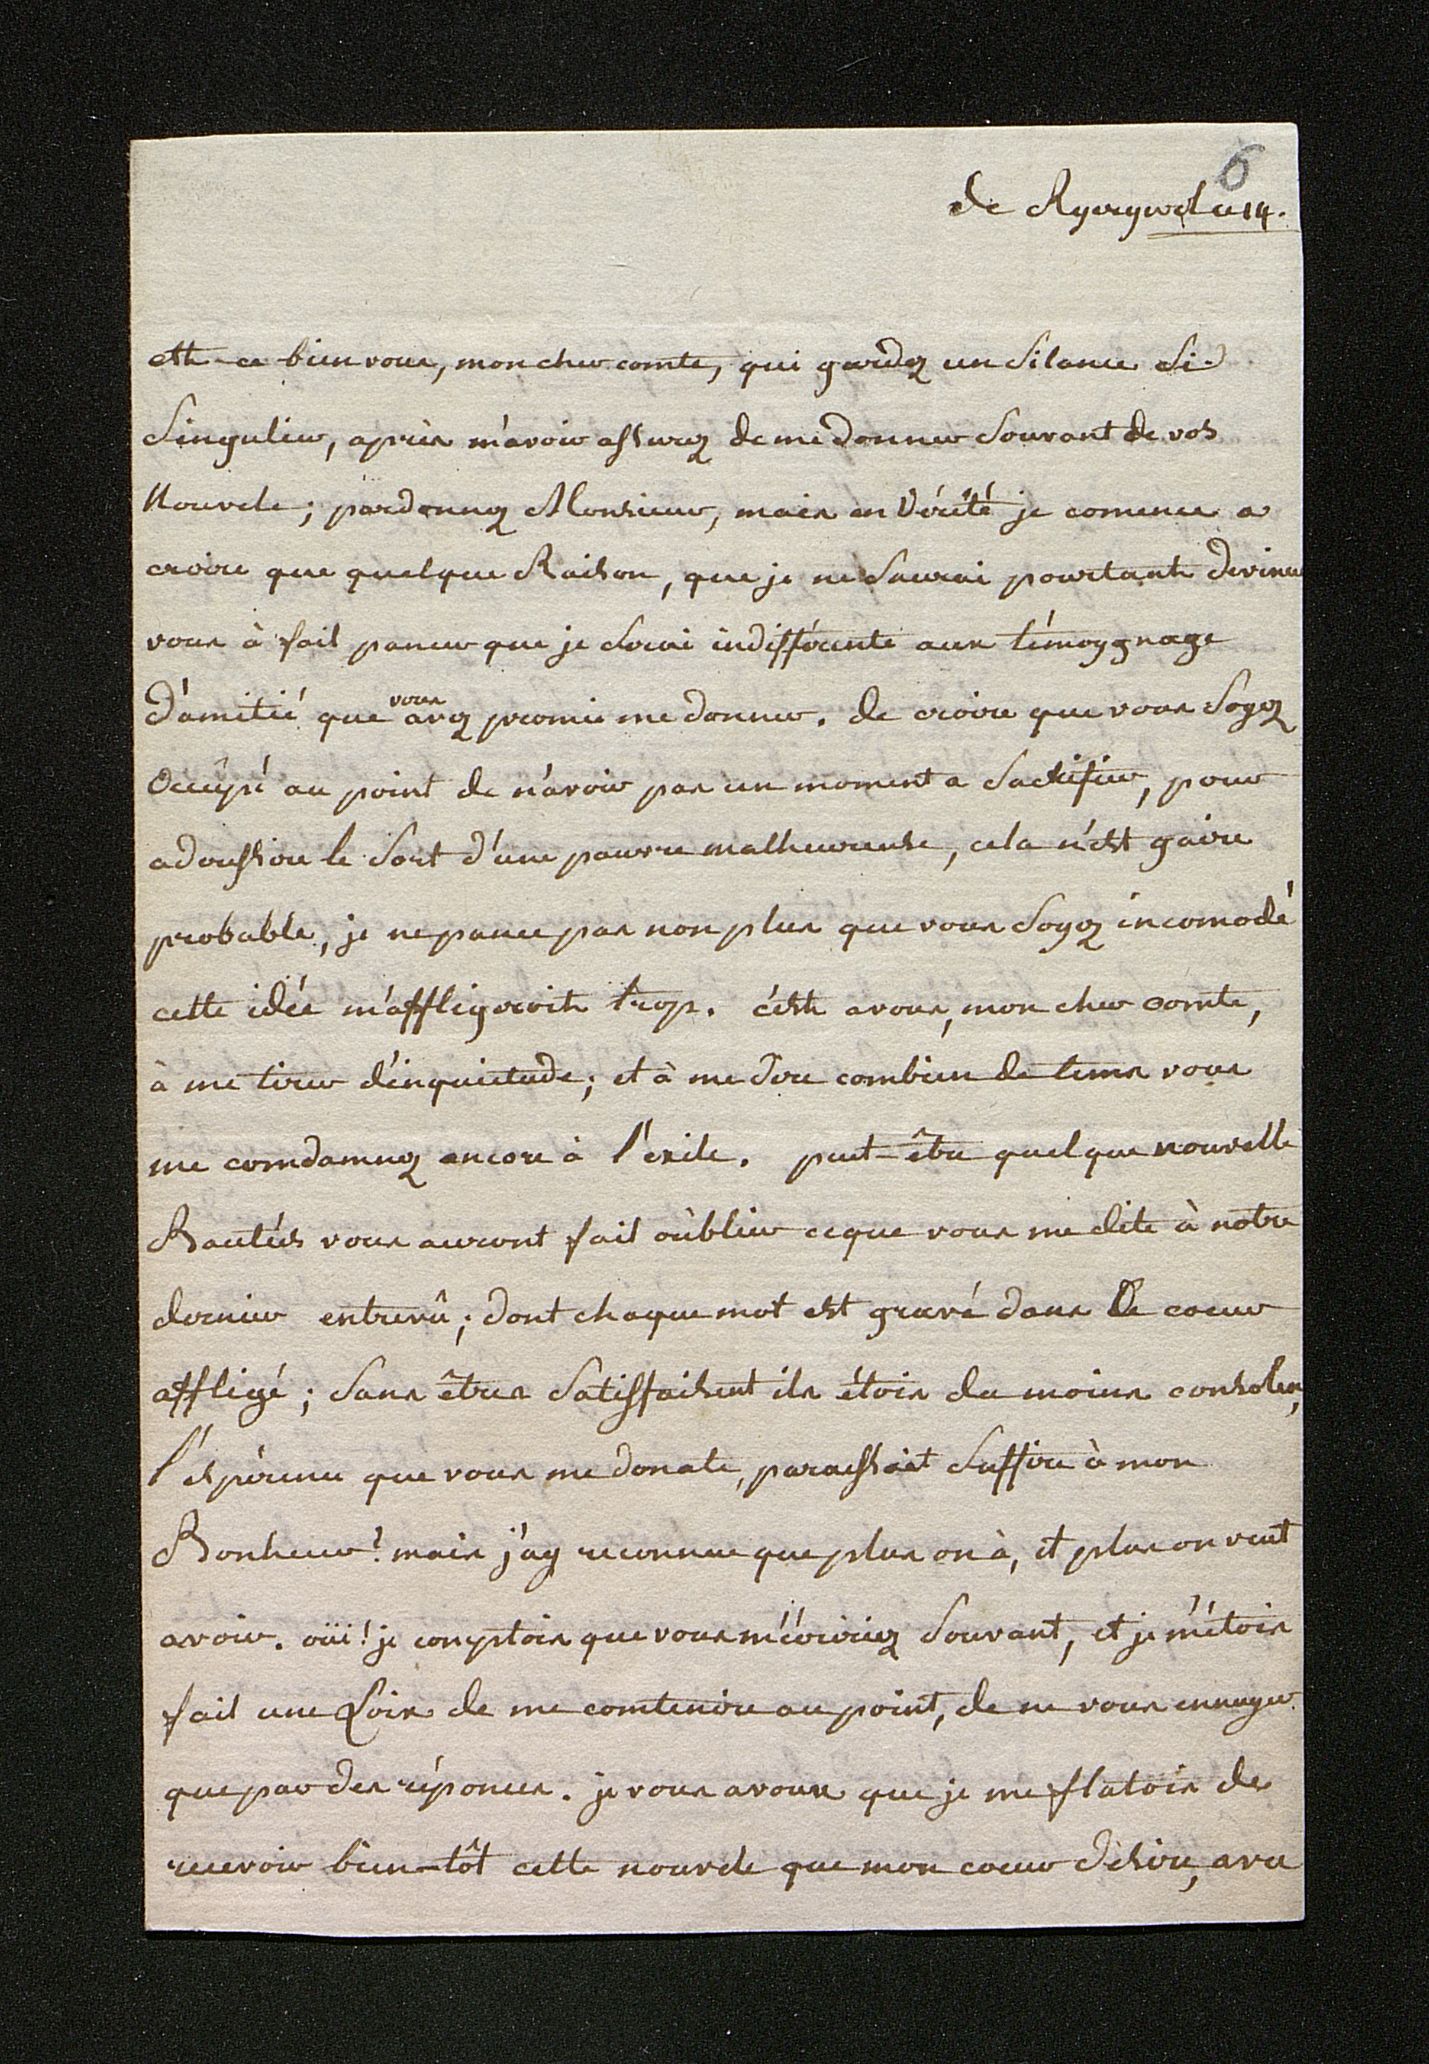 6
de Ryerswel ce 14.
esth-ce bien vous, mon cher comte, qui gardez un Silance Si
Singulier, après m'avoir assurez de me donner Souvant de vos
Nouvele; pardonnez Monsieur, mais en Vérité je comence a
croire que quelque Raison, que je ne Saurai pourtant deviner
vous à fait pancer que je Serai indifférente aux témoygnage
d'amitié que vous avez promis me donner. de croire que vous Soyez
Occupé au point de n'avoir pas un moment a Sackifier, pour
adoussire le Sort d'une pauvre malheureuse, cela n'est gaire
probable, je ne pance pas non plus que vous Soyez incomodé
cette idée m'affligeroit trop. c'esth a vous, mon cher comte,
à me tirer d'inquietude; et à me dire combien de tems vous
me comdamnez encore à l'exile. peut-être quelque nouvelle
Bautés vous auront fait oùblier ce que vous me dite à notre
dernier entrevû; dont chaque mot est gravé dans le coeur
affligé; Sans êtres Satisfaisent ils étois du moins consolen,
l'espérence que vous me donate, paraissait Suffire à mon
Bonheur? mais j'ay reconnue que plus on à, et plus on veut
avoir. oüi! je comptois que vous m'écririez Souvant, et je m'étois
fait une Loix de me comtenire au point, de ne vous ennuyer
que par des réponces. je vous avoue que je me flatois de
recevoir bien-tôt cette nouvele que mon coeur désire, avec